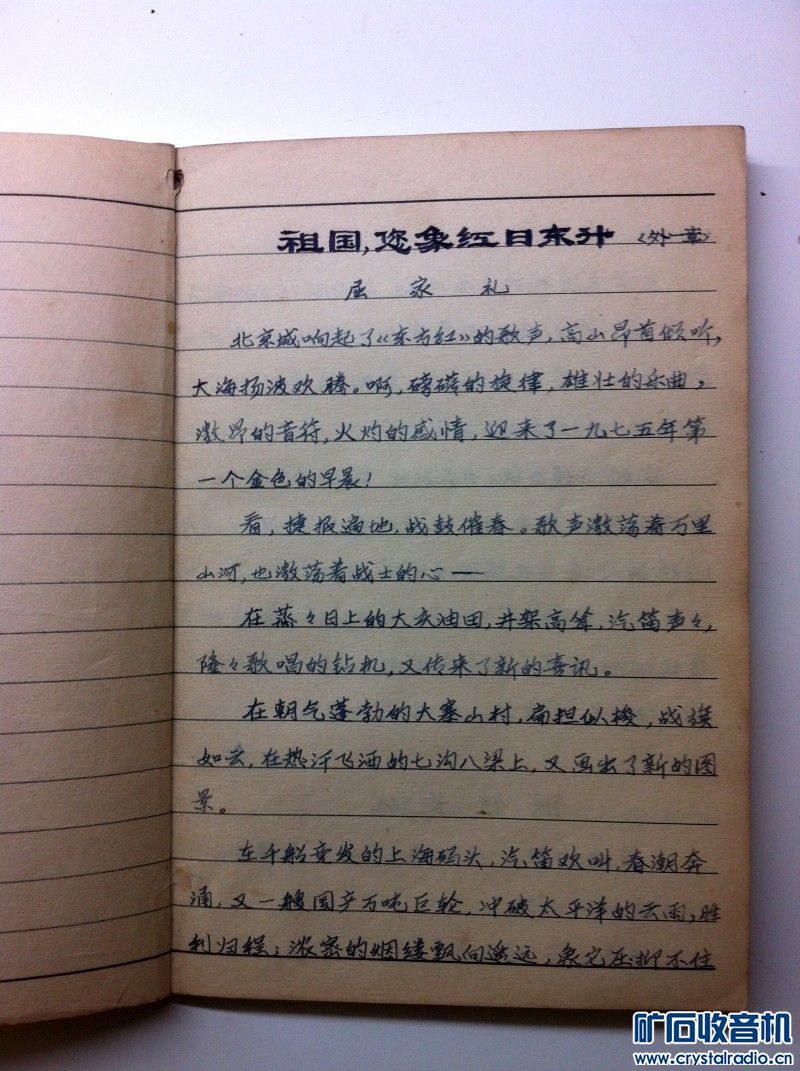 祖国,您象红日东升《外一章》
屈家礼
北京城响起了《东方红》的歌声,高山昂首倾听,
大海扬波欢腾。啊,磅礴的旋律,雄壮的乐曲,
激昂的音符,火灼的感情,迎来了一九七五年第
一个金色的早晨!
看,捷报遍地,战鼓催春。歌声激荡着万里
山河,也激荡着战士的心—
在蒸々日上的大庆油田,井架高耸,汽笛声々,
隆々歌唱的钻机,又传来了新的喜讯。
在朝气蓬勃的大寨山村,扁担似梭,战旗
如云,在热汗飞洒的七沟八梁上,又画出了新的图
景。
在千船竞发的上海码头,汽笛欢叫,春潮奔
涌,又一艘国产万吨巨轮,冲破太平洋的云雨,胜
利归程;浓密的烟缕飘向遥远,象它压抑不住
矿石收音机
www.crystalradio.cn